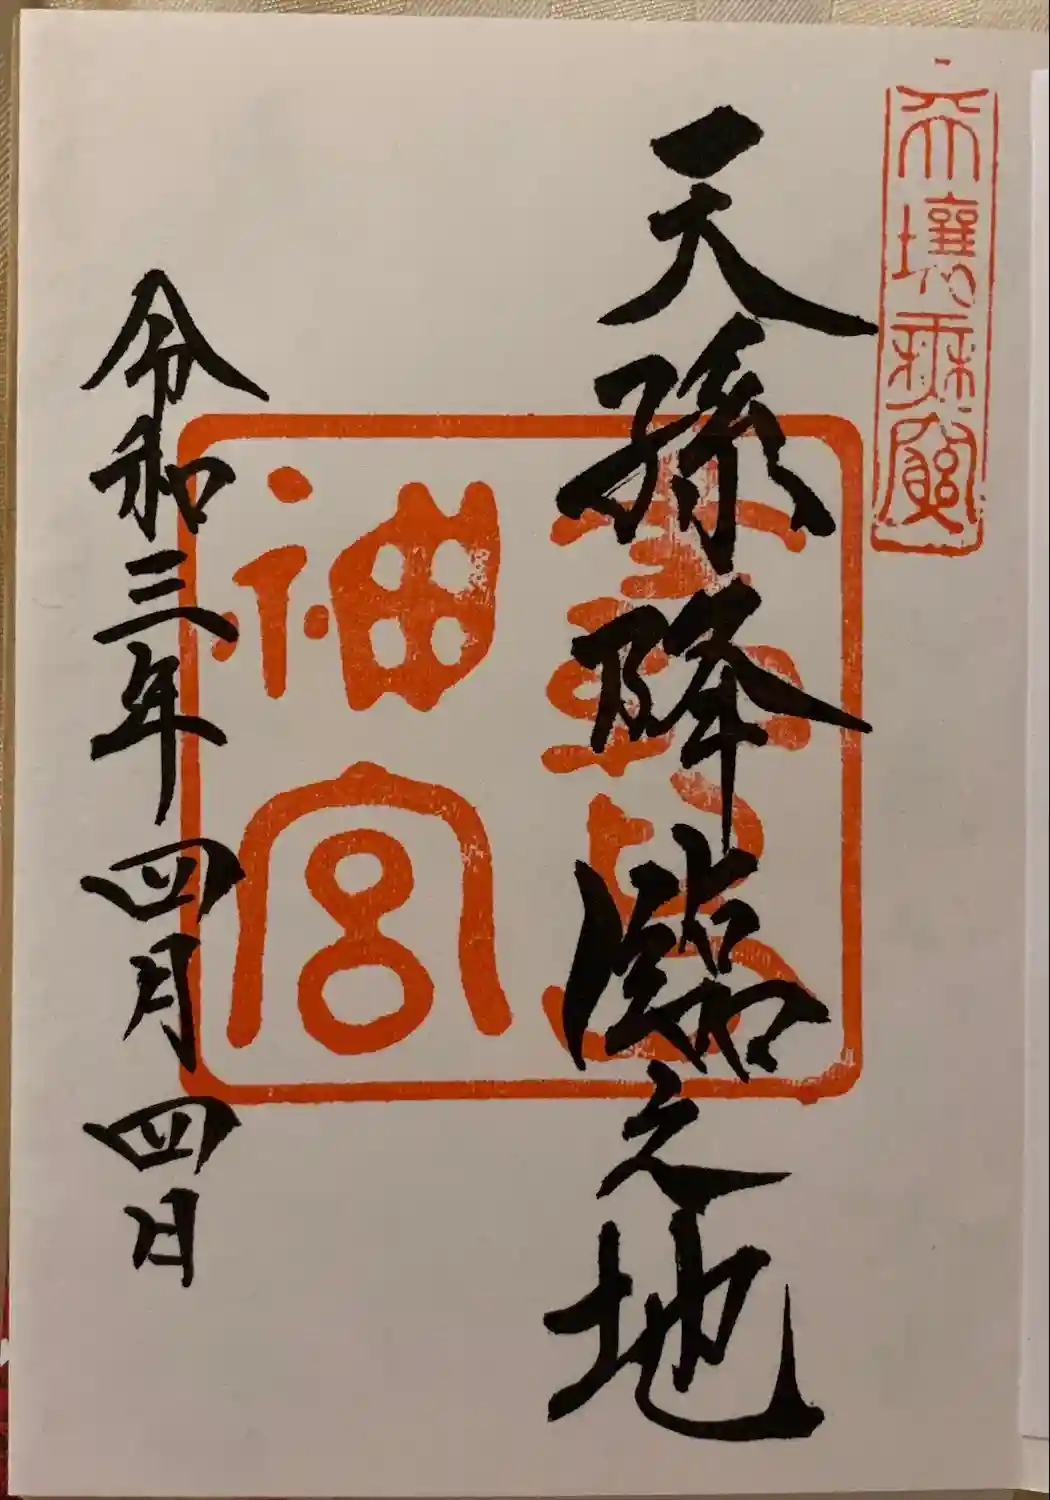 天壤無窮
天孫降臨之地
霧島神宮
令和三年四月四日